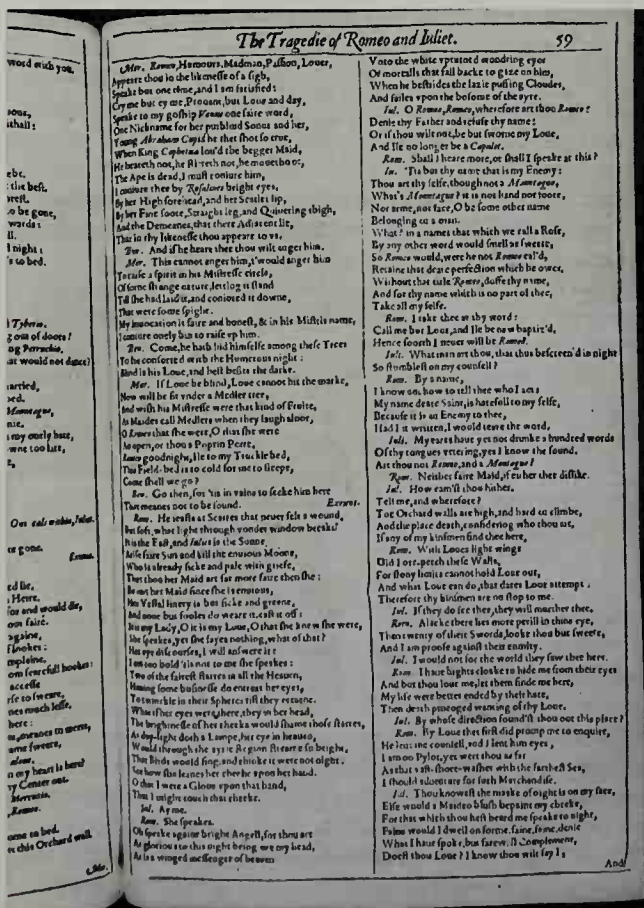 word with you.
athall:
the best.
to be gone,
night:
's to bed.
Tyberio.
gone out of doors?
yong Perruchio,
at would not dance?
married,
bed.
Mountague,
my onely hate,
owne too late,
One cals within, Iuliet.
gone.
Exeunt.
for and would die,
om faire.
againe,
complaine,
om fearefull hookes:
accesse
rse to sweare,
meanes to meete,
my heart is here?
thy Center out.
Mercutio.
Romeo.
to bed.
this Orchard wall
Mer.
The Tragedie of Romeo and Iuliet.
59
Mer. Romeo, Humours, Madman, Passion, Louer,
Appeare thou in the likenesse of a sigh,
Speake but one rime, and I am satisfied:
Cry me but ay me, Prouant, but Loue and day,
Speake to my goship Venus one faire word,
One Nickname for her purblind Sonne and her,
Young Abraham Cupid he that shot so true,
When King Cophetua lou'd the begger Maid,
He heareth not, he stirreth not, he moueth not,
The Ape is dead, I must coniure him,
I coniure thee by Rosalines bright eyes,
By her High forehead, and her Scarlet lip,
By her Fine foote, Straight leg, and Quiuering thigh,
And the Demeanes, that there Adiacent lie,
That in thy likenesse thou appeare to vs.
Ben. And if he heare thee thou wilt anger him.
Mer. This cannot anger him, t'would anger him
To raise a spirit in his Mistresse circle,
Of some strange nature, letting it stand
Till she had laid it, and coniured it downe,
That were some spight.
My inuocation is faire and honest, & in his Mistris name,
I coniure onely but to raise vp him.
Ben. Come, he hath hid himselfe among these Trees
To be consorted with the Humerous night:
Blind is his Loue, and best befits the darke.
Mer. If Loue be blind, Loue cannot hit the marke,
Now will he sit vnder a Medler tree,
And wish his Mistresse were that kind of Fruite,
As Maides call Medlers when they laugh alone,
O Romeo that she were, O that she were
An open, or thou a Poprin Peare,
Romeo goodnight, Ile to my Truckle bed,
This Field-bed is to cold for me to sleepe,
Come shall we go?
Ben. Go then, for 'tis in vaine to seeke him here
That meanes not to be found. Exeunt.
Rom. He ieasts at Scarres that neuer felt a wound,
But soft, what light through yonder window breaks?
It is the East, and Iuliet is the Sunne,
Arise faire Sun and kill the enuious Moone,
Who is already sicke and pale with griefe,
That thou her Maid art far more faire then she:
Be not her Maid since she is enuious,
Her Vestal liuery is but sicke and greene,
And none but fooles do weare it, cast it off:
It is my Lady, O it is my Loue, O that she knew she were,
She speakes, yet she sayes nothing, what of that?
Her eye discourses, I will answere it:
I am too bold 'tis not to me she speakes:
Two of the fairest starres in all the Heauen,
Hauing some businesse do entreat her eyes,
To twinckle in their Spheres till they returne.
What if her eyes were there, they in her head,
The brightnesse of her cheeke would shame those starres,
As day-light doth a Lampe, her eye in heauen,
Would through the ayrie Region streame so bright,
That Birds would sing, and thinke it were not night:
See how she leanes her cheeke vpon her hand.
O that I were a Gloue vpon that hand,
That I might touch that cheeke.
Iul. Ay me.
Rom. She speakes.
Oh speake againe bright Angell, for thou art
As glorious to this night being ore my head,
As is a winged messenger of heauen
Vnto the white vpturned wondring eyes
Of mortalls that fall backe to gaze on him,
When he bestrides the lazie puffing Cloudes,
And sailes vpon the bosome of the ayre.
Iul. O Romeo, Romeo, wherefore art thou Romeo?
Denie thy Father and refuse thy name:
Or if thou wilt not, be but sworne my Loue,
And Ile no longer be a Capulet.
Rom. Shall I heare more, or shall I speake at this?
Iu. 'Tis but thy name that is my Enemy:
Thou art thy selfe, though not a Mountague,
What's Mountague? it is nor hand nor foote,
Nor arme, nor face, O be some other name
Belonging to a man.
What? in a names that which we call a Rose,
By any other word would smell as sweete,
So Romeo would, were he not Romeo cal'd,
Retaine that deare perfection which he owes,
Without that title Romeo, doffe thy name,
And for thy name which is no part of thee,
Take all my selfe.
Rom. I take thee at thy word:
Call me but Loue, and Ile be new baptiz'd,
Hence foorth I neuer will be Romeo.
Iuli. What man art thou, that thus bescreen'd in night
So stumblest on my counsell?
Rom. By a name,
I know not how to tell thee who I am:
My name deare Saint, is hatefull to my selfe,
Because it is an Enemy to thee,
Had I it written, I would teare the word,
Iuli. My eares haue yet not drunke a hundred words
Of thy tongues vttering, yet I know the sound.
Art thou not Romeo, and a Montague?
Rom. Neither faire Maid, if either thee dislike.
Iul. How cam'st thou hither.
Tell me, and wherefore?
The Orchard walls are high, and hard to climbe,
And the place death, considering who thou art,
If any of my kinsmen find thee here,
Rom. With Loues light wings
Did I ore-perch these Walls,
For stony limits cannot hold Loue out,
And what Loue can do, that dares Loue attempt:
Therefore thy kinsmen are no stop to me.
Iul. If they do see thee, they will murther thee.
Rom. Alacke there lies more perill in thine eye,
Then twenty of their Swords, looke thou but sweete,
And I am proofe against their enmity.
Iul. I would not for the world they saw thee here.
Rom. I haue nights cloake to hide me from their eyes
And but thou loue me, let them finde me here,
My life were better ended by their hate,
Then death proroged wanting of thy Loue.
Iul. By whose direction found'st thou out this place?
Rom. By Loue that first did promp me to enquire,
He lent me counsell, and I lent him eyes,
I am no Pylot, yet wert thou as far
As that vast-shore-washet with the farthest Sea,
I should aduenture for such Marchandise.
Iul. Thou knowest the maske of night is on my face,
Else would a Maiden blush bepaint my cheeke,
For that which thou hast heard me speake to night,
Faine would I dwell on forme, faine, faine, denie
What I haue spoke, but farewell Complement,
Doest thou Loue? I know thou wilt say I,
And